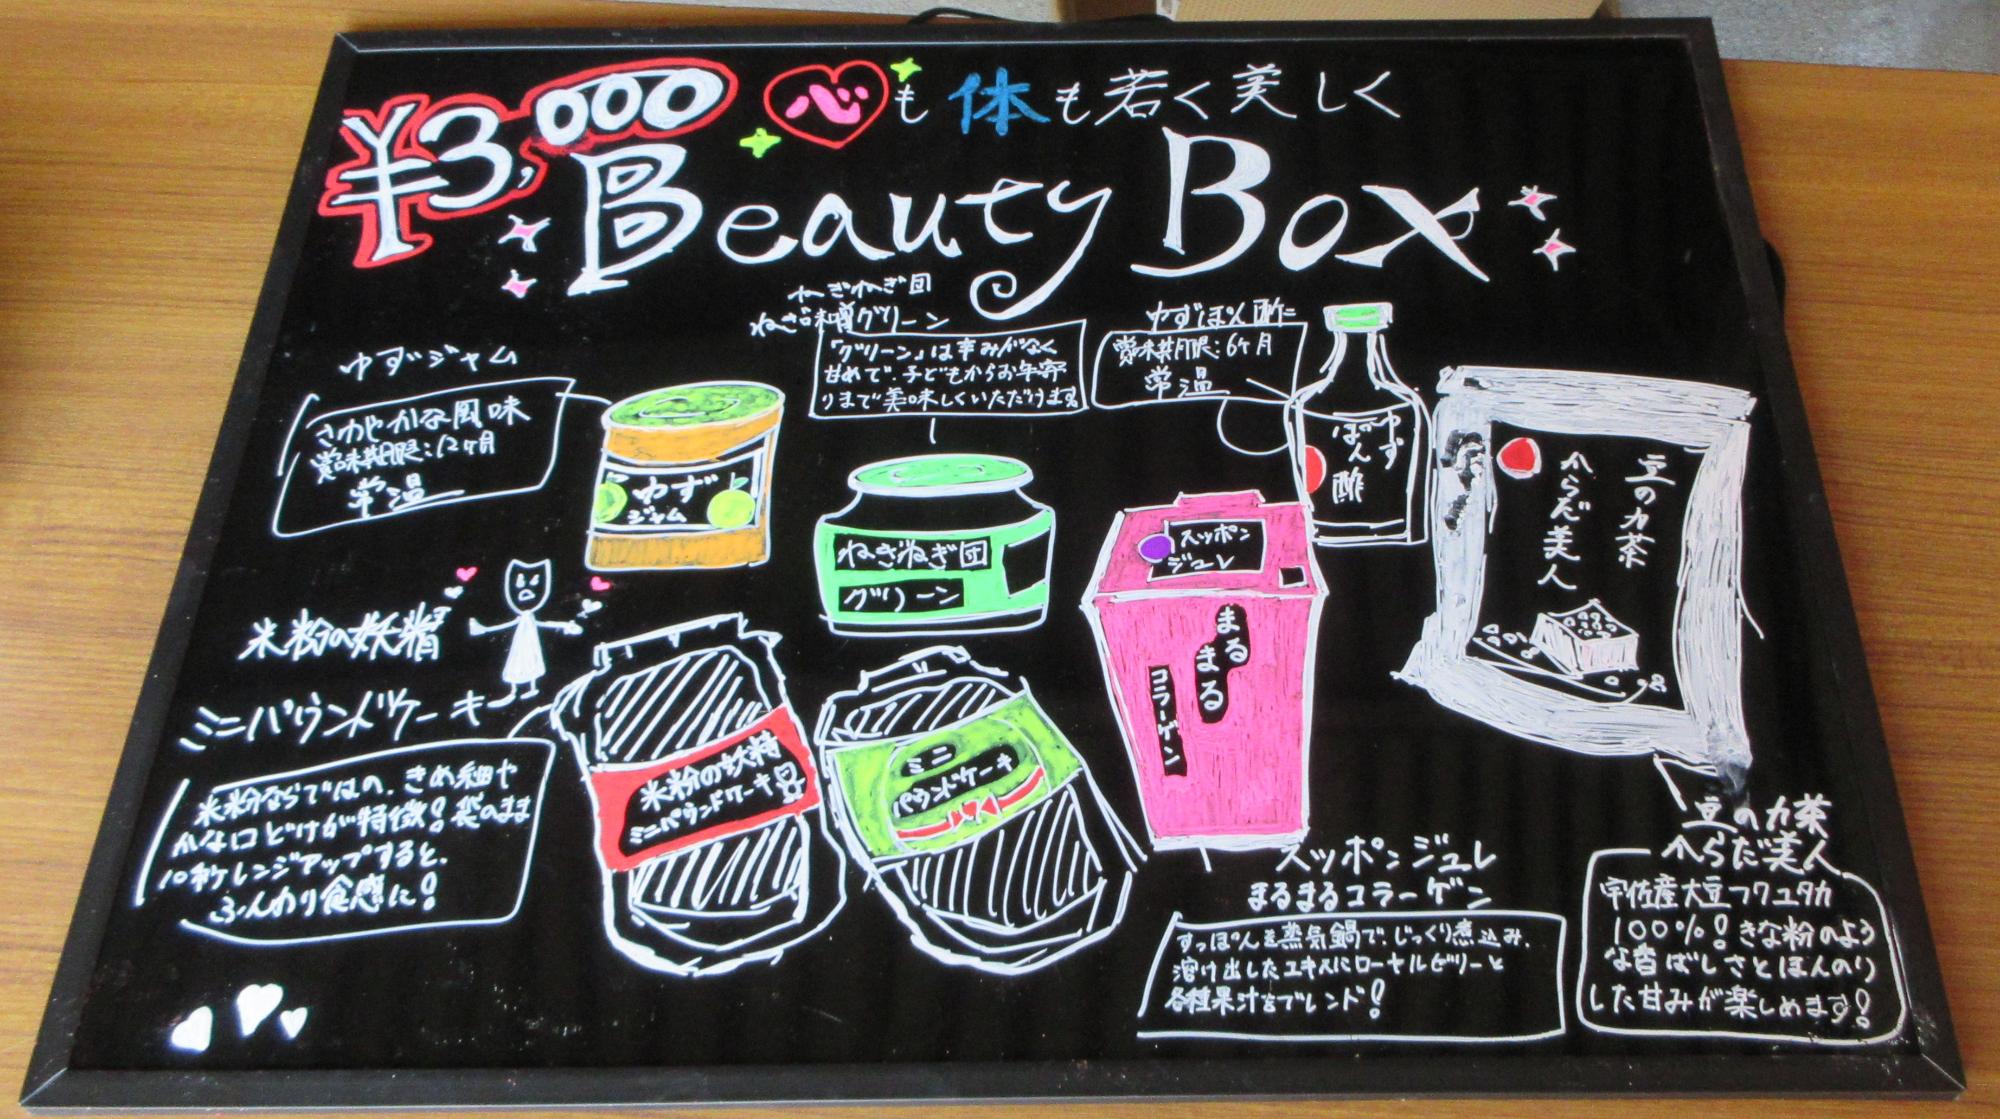 ¥3,000
心も体も若く美しく
Beauty Box
ゆずジャム
さわやかな風味
賞味期限:12ヶ月
常温
ゆず
ジャム
ねぎねぎ団
ねぎ味噌グリーン
「グリーン」は辛みがなく
甘めで、子どもからお年寄
りまで美味しくいただけます。
ねぎねぎ団
グリーン
ゆずぽん酢
賞味期限:6ヶ月
常温
ゆず
ぽん酢
豆の力茶
からだ美人
スッポン
ジュレ
まるまる
コラーゲン
米粉の妖精
ミニパウンドケーキ
米粉ならではの、きめ細や
かな口どけが特徴!袋のまま
10秒レンジアップすると、
ふんわり食感に!
米粉の妖精
ミニパウンドケーキ
ミニ
パウンドケーキ
スッポンジュレ
まるまるコラーゲン
すっぽんを蒸気鍋で、じっくり煮込み、
溶け出したエキスにローヤルゼリーと
各種果汁をブレンド!
豆の力茶
からだ美人
宇佐産大豆フクユタカ
100%!きな粉のよう
な香ばしさとほんのり
した甘みが楽しめます!